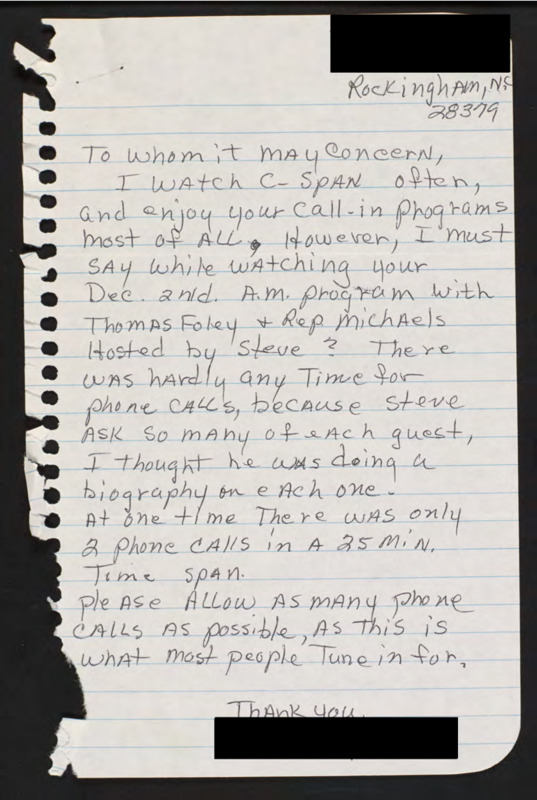 Rockingham, N.C
28379
To whom it may Concern,
I watch C-Span often,
and enjoy your Call-in programs
most of ALL. However, I must
say while watching your
Dec. 2nd. A.M. program with
Thomas Foley & Rep Michaels
Hosted by Steve ? There
was hardly any Time for
phone calls, because Steve
ask so many of each guest,
I thought he was doing a
biography on each one.
At one time There was only
2 phone calls in a 25 Min.
Time span.
Please allow as many phone
calls as possible, as this is
what most people Tune in for.
Thank you,